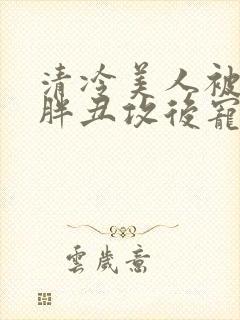 清冷美人被
胖丑攻後寵
雲歲意